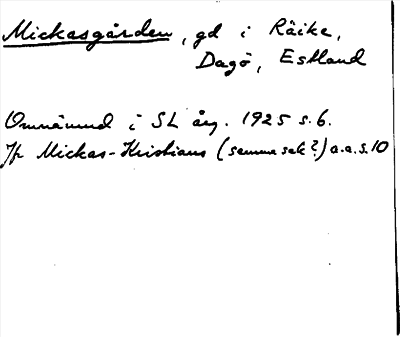 Mickasgården, gd i Räike,
Dagö, Estland
Omnämnd i SL årg. 1925 s. 6.
Jfr Mickas-Kristians (samma sak?) a.a.s. 10